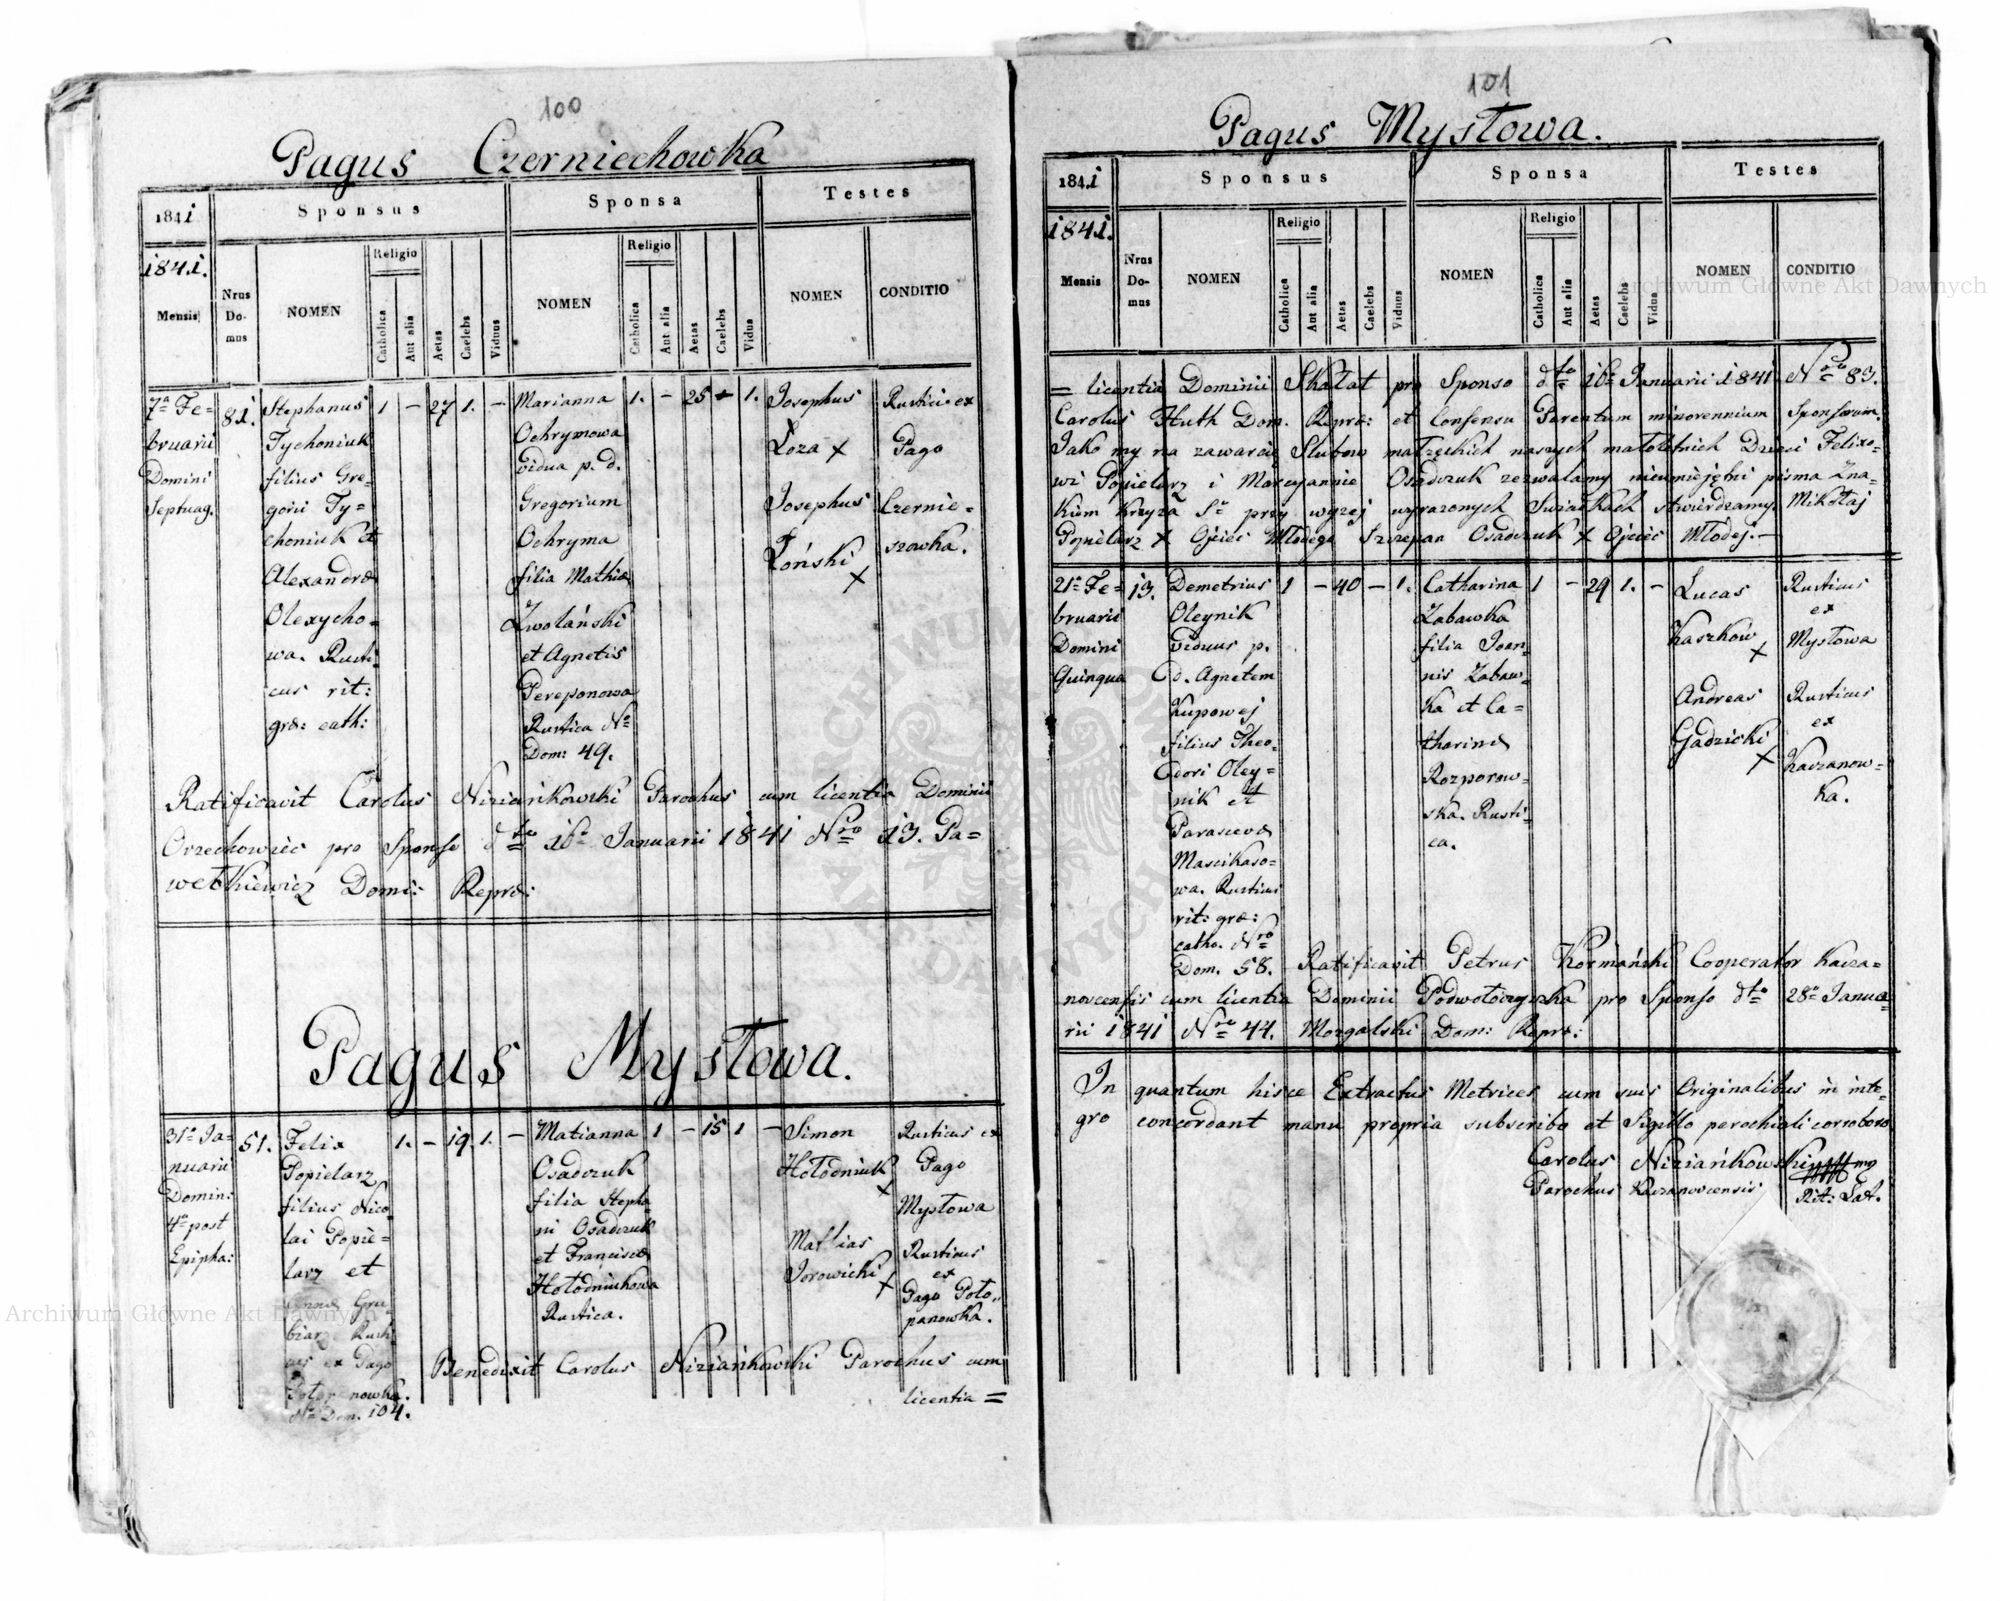 100
Pagus Czerniechowka
1841
Sponsus
Sponsa
Testes
1841.
Mensis
Nrus Domus
NOMEN
Religio
Catholica
Aut alia
Aetas
Caelebs
Viduus
NOMEN
Religio
Catholica
Aut alia
Aetas
Caelebs
Vidua
NOMEN
CONDITIO
7a Fe=
bruarii
Domini
Septuag.
81.
Stephanus
Tychoniuk
filius Gre=
gorii Ty=
choniuk et
Alexandræ
Olexycho=
wa. Rusti
cus rit:
græ: cath:
1 – 27 1. –
Marianna
Ochrymowa
vidua p. d.
Gregorium
Ochryma
filia Mathiæ
Zwolański
et Agnetis
Pereponowa
Rustica No
Dom: 49.
1. – 25 – 1.
Josephus
Łoza x
Josephus
Łoński
x
Rustici ex
Pago
Czernie=
szowka.
Ratificavit Carolus Niziańkowski Parochus cum licentia Dominii
Orzechowiec pro Sponso dto 16a Januarii 1841 Nro 13. Pa=
wełkiewicz Domi: Repræ:
Pagus Mysłowa.
31a Ja=
nuarii
Domin:
4a post
Epipha:
51.
Felix
Popielarz
filius Nico
lai Popie=
larz et
Annæ Gru
biarz Rusti
cus ex Pago
Połopanowka.
No Dom. 104.
1. – 19 1. –
Marianna
Osadczuk
filia Stepha
ni Osadczuk
et Franciscæ
Hołodniukowa
Rustica.
1 – 15 1 –
Simon
Hołodniuk
x
Mathias
Jorowicki
x
Rusticus ex
Pago
Mysłowa
Rusticus
ex
Pago Poło=
panowka.
Benedixit Carolus Niziańkowski Parochus cum
licentia =
101
Pagus Mysłowa.
1841
Sponsus
Sponsa
Testes
1841.
Mensis
Nrus Domus
NOMEN
Religio
Catholica
Aut alia
Aetas
Caelebs
Viduus
NOMEN
Religio
Catholica
Aut alia
Aetas
Caelebs
Vidua
NOMEN
CONDITIO
= licentia Dominii Skałat pro Sponso dto 16a Januarii 1841 Nro 83.
Carolus Huth Dom. Repræ: et Consensu Parentum minorennium Sponsorum.
Jako my na zawarcie Slubow małzęskich naszych małoletnich Dzieci Felixo=
wi Popielarz i Maryjannie Osadczuk zezwalamy nieumiejętni pisma Zna=
kiem Krzyza So przy wyzej wyrazonych Swiadkach stwierdzamy Mikołaj
Popielarz x Ojciec Młodego Szczepan Osadczuk x Ojciec Młodej. –
21a Fe=
bruarii
Domini
Quinqua
13.
Demetrius
Oleynik
viduus p.
d. Agnetem
Kupowej
filius Theo=
dori Oley=
nik et
Parascevæ
Mascikaso=
wa. Rusticus
rit: græ:
catho. Nro
Dom. 58.
1 – 40 – 1.
Catharina
Zabawka
filia Joan=
nis Zabaw=
ka et Ca=
tharinæ
Rozporow=
ska. Rusti=
ca.
1 – 29 1. –
Lucas
Kaszkow
x
Andreas
Gadzicki
x
Rusticus
ex
Mysłowa
Rusticus
ex
Kaczanow=
ka.
Ratificavit Petrus Kormański Cooperator Kacza=
novcensis cum licentia Dominii Podwołoczyska pro Sponso dto 28a Janua=
rii 1841 Nro 44. Morgalski Dom: Repræ:
In quantum hisce Extractus Metrices cum suis Originalibus in inte=
gro concordant manu propria subscribo et Sigillo parochiali corroboro
Carolus Niziańkowski mp
Parochus Kaczanovcensis Rit: Lat.
Archiwum Główne Akt Dawnych
Archiwum Główne Akt Dawnych
ARCHIWUM GŁÓWNE AKT DAWNYCH